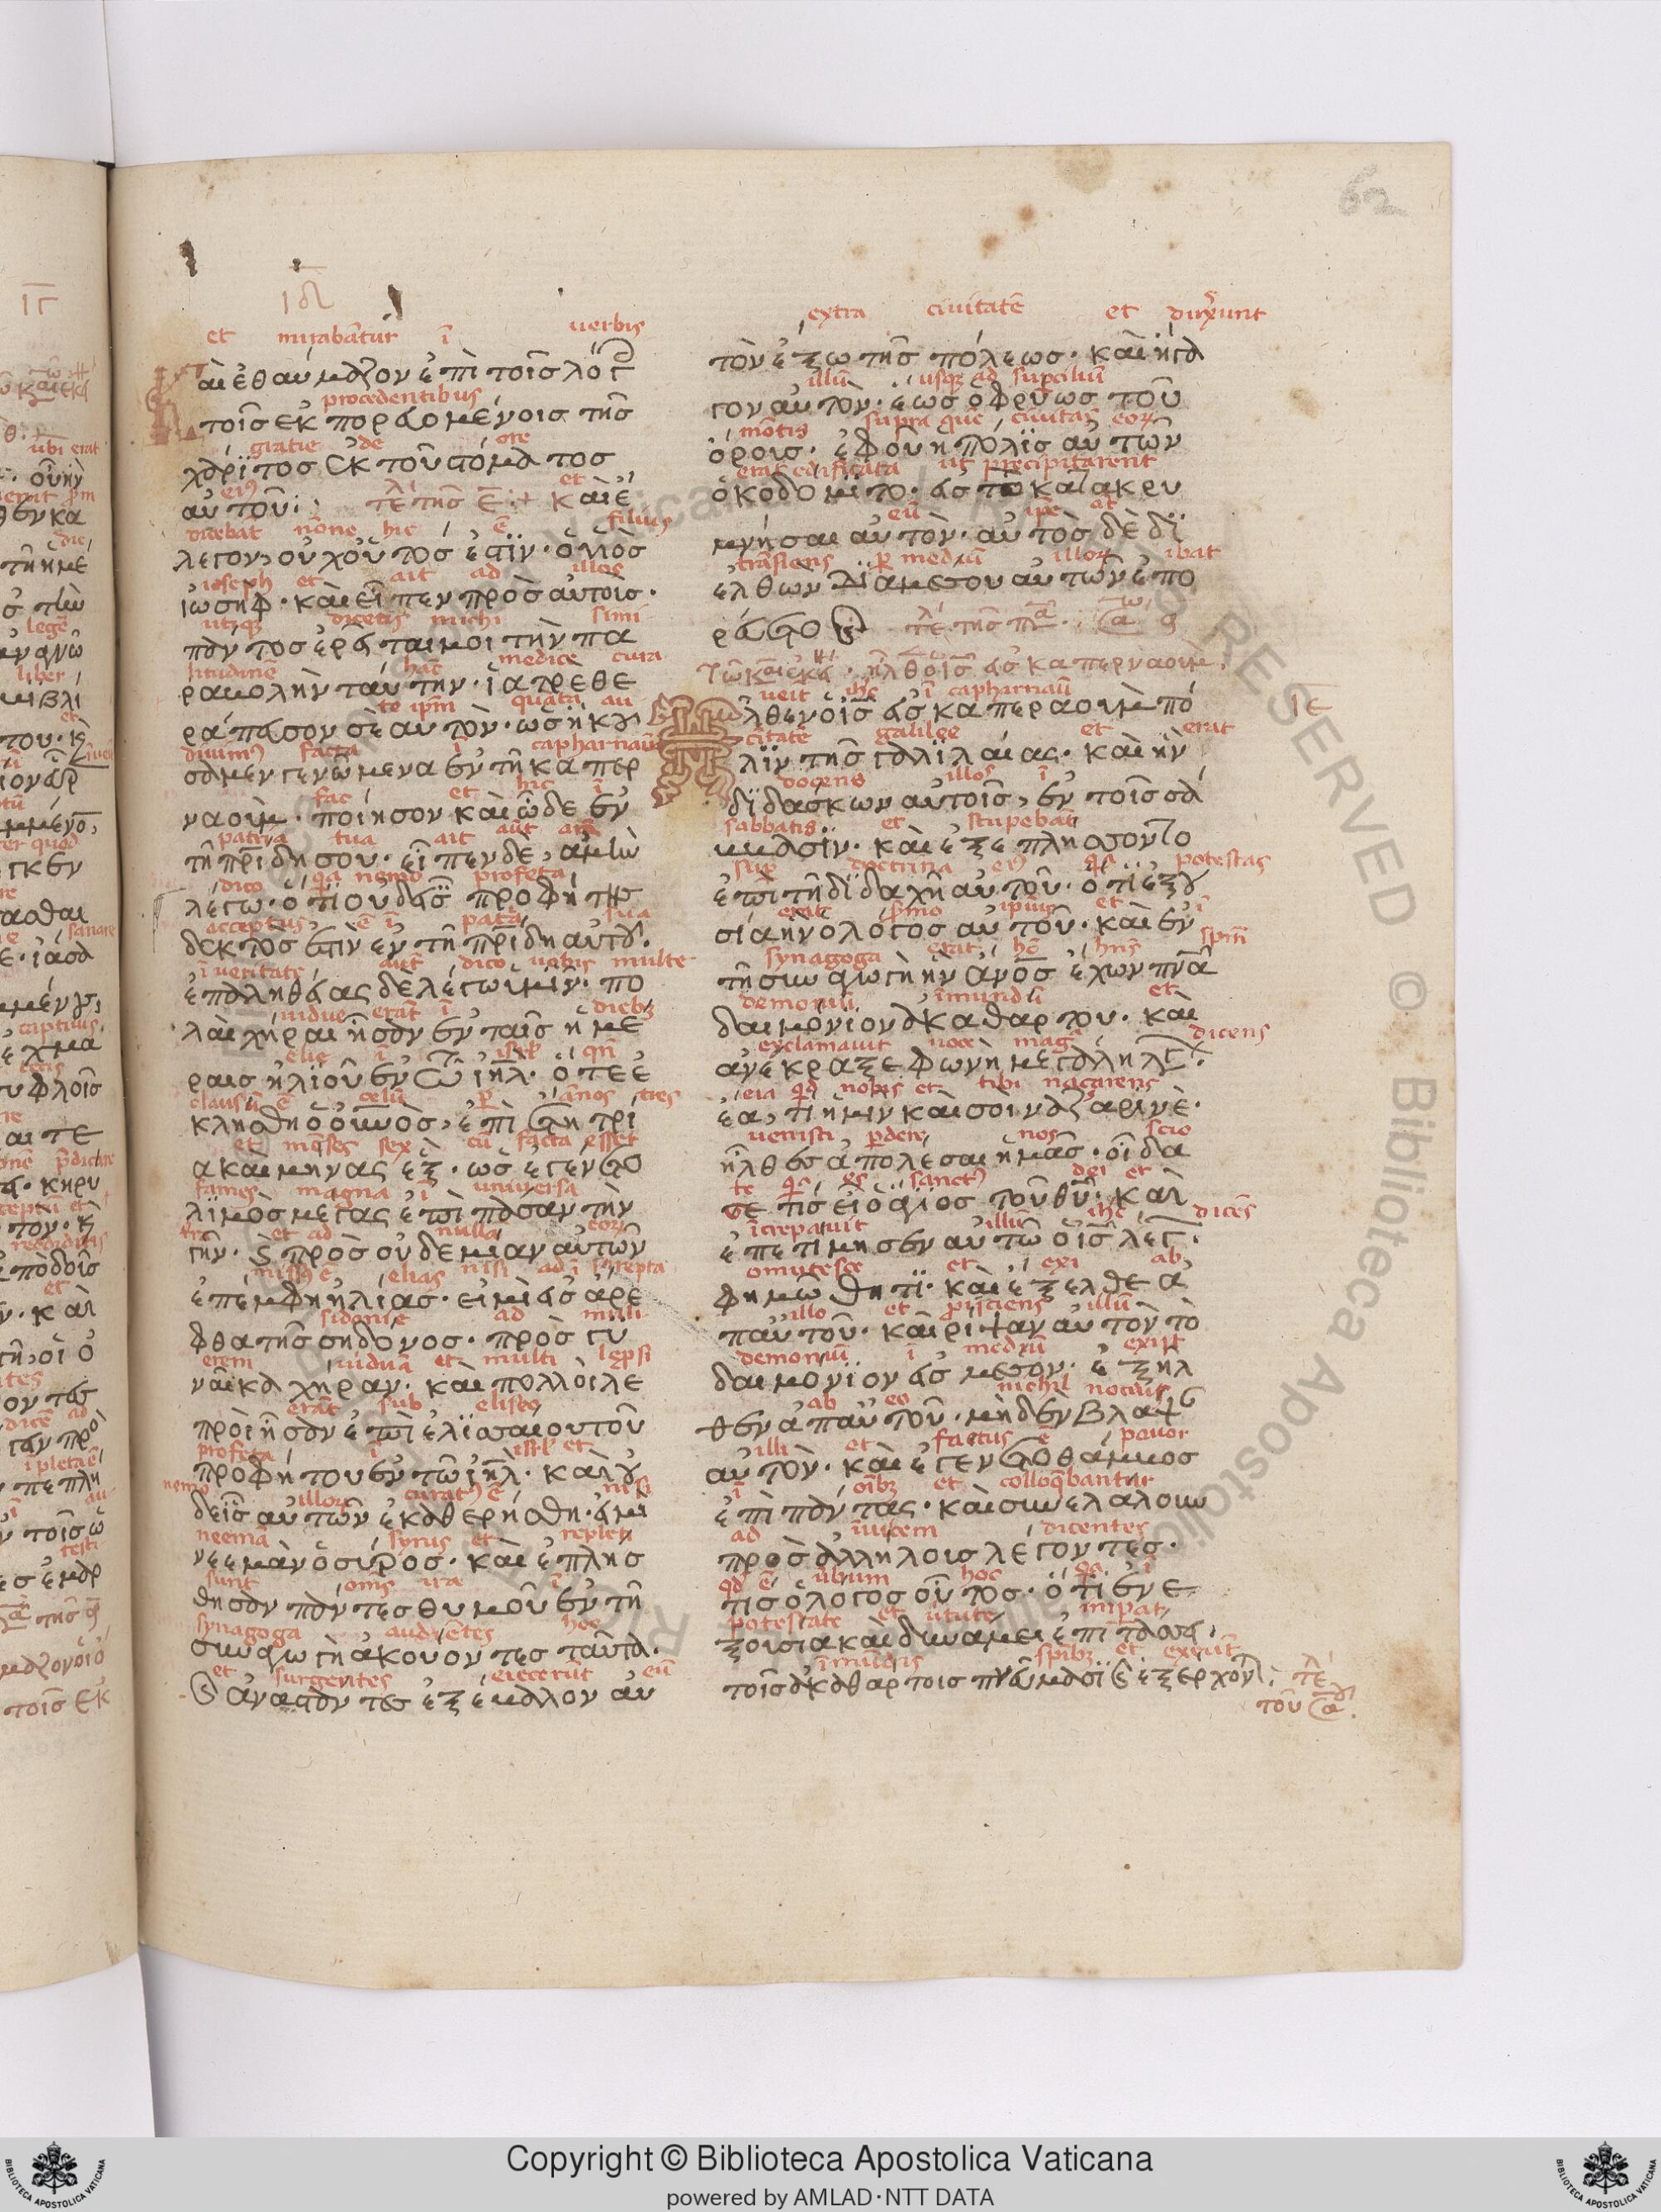 62
ιδ
et mirabātur ī uerbis
Καὶ ἐθαύμαζον ἐπὶ τοῖς λόγ
procedentibus
τοῖς ἐκπορευομένοις τῆς
gratie de ore
χάρϊτος ἐκ τοῦ στόματος
αὐτοῦ: τε τῆς ε:+ καὶ ἔ
dicebāt nōne hic ē filius
λεγον, οὐχ οὗτος ἐστὶν ὁ υἱὸς
ioseph et ait ad illos
ἰωσήφ· καὶ εἶπεν πρὸς αὐτοὺς·
utiqꝫ dicetis michi simi
πάντος ἐρεῖται μοι τὴν πα
litudinē hāc medice cura
ραβολὴν ταύτην· ἰατρὲ θε
te ipm̄ quāta au
ράπευσον σὲαυτὸν· ὡσήκου
diuimꝰ facta ī capharnaū
σαμεν γενώμενα ἐν τῆ καπερ
fac et hic ī
ναοὺμ· ποίησον καὶ ὧδε ἐν
patria tua ait aūt
τῆ πρΐδη σου· εἶπεν δὲ, ἀμὴν
dico qa nemo profeta
λέγω· ὅτι οὐδεῖς προφήτης
acceptus ē ī patria sua
δεκτὸς ἐστὶν ἐν τῆ πρΐδη αὐτοῦ·
ī ueritate aut dico uobis multe
ἐπαληθείας δε λέγω ὑμῖν· πο
uidue erāt ī diebꝫ
λαὶ χῆραι ἦσαν ἐν ταῖς ἡμέ
elie ī isrl qn̄
ραις ἠλϊοῦ ἐν τῶ ιηλ· ὅτε ἐ
clausū ē celū p ānos tres
κλήσθη ὁ οὐνὸς, ἐπὶ ἔτη τρί
et mēses sex cū facta esset
α καὶ μηνας ἑξ· ὡς ἐγένετο
fames magna ī uniuersa
λϊμὸς μέγας ἐπὶ πᾶσαν τὴν
et ad nulla eorꝫ
γῆν· καὶ πρὸς οὐδεμίαν αὐτῶν
missꝰ ē elias nisi ad ī sarepta
ἐπέμφη ἠλίας· εἰμὶ εἰς ἀρε
sidonie ad muli
φθα τῆς σηδόνος· πρὸς γυ
erem uiduā et multi leprsi
ναῖκα χῆραν· καὶ πολλοὶ λε
erāt sub eliseo
προὶ ἦσαν ἐπὶ ἐλϊσσαίου τοῦ
profeta ī isrl et
προφήτου ἐν τῶ ιηλ· καὶ οὐ
nemo illorꝫ curatꝰ ē nisi
δεῖς αὐτῶν ἐκαθερήσθη· εἰμὶ
neemā syrus et repleti
νεεμὰν ὁ σύρος· καὶ ἐπλησ
sunt omīs ira ī
θησαν πάντες θυμοῦ ἐν τῆ
synagoga audiētes hoc
συναγωγῆ ἀκούοντες ταῦτα·
et surgentes eiecerūt eū
καὶ ἀναστάντες ἐξέμαλλον αὐ
extra ciuitatē et duxerunt
τὸν ἔξω τῆς πόλεως· καὶ ἤγα
illū usqꝫ ad supciliū
γον αὐτὸν· ἕως ὀφρύως τοῦ
mōtis supra quē ciuitas eorꝫ
ὄρους· ἐφ οὗ ἡ πόλϊς αὐτῶν
erat edificata ut precipitarent
ὀκοδόμϊτο· εἰς τὸ κατακρυ
eū ipe at
μνῆσαι αὐτὸν· αὐτὸς δὲ δϊ
trāsiens p mediū illorꝫ ibat
ελθὼν δϊαμέσου αὐτῶν ἐπο
ρεύετο
Τῶ καιεκεί· ἦλθ ὁ ισ εἰς καπερναούμ·
ueīt ihc ī capharnaū ιε
ἦλθεν ὁ ισ εἰς καπεραοὺμ πό
citatē galilee et erat
λϊν τῆς γαλϊλαίας· καὶ ἦν
docens illos ī
δϊδάσκων αὐτοῖς, ἐν τοῖς σά
sabbatis et stupebāt
μμασϊν· καὶ ἐξεπλήσσοντο
sup doctrina eiꝰ qa potestas
ἐπὶ τῆ δϊδαχῆ αὐτοῦ· ὅτι ἐξου
erat smo ipius et ī
σία ἦν ὁ λόγος αὐτοῦ· καὶ ἐν
synagoga erat hō hn̄s spm̄
τῆ συναγωγῆ ἦν ἄνος ἔχων πνα
demonii īmundū et
δαιμόνϊον ἀκαθάρτου· καὶ
exclamauit uoce mag dicens
ἀνέκραξε φωνῆ μεγάλη λεγ·
eia qd nobis et tibi naçarens
ἔα, τί ἡμῖν καὶ σοὶ ναζαρινὲ·
uenisti pdere nos scio
ἦλθες ἀπολέσαι ἡμᾶς· οἶδα
te qs es sanctꝰ dei et
σε τίς εἶ ὁ ἅγϊος τοῦ θυ· καὶ
īcrepauit illū ihc dicēs
ἐπετίμησεν αὐτῶ ὁ ισ λεγ·
omutesce et exi ab
φημώθητϊ· καὶ ἔξελθε ἀ
illo et piciens illū
παὐτοῦ· καὶ ρίψαν αὐτὸν τὸ
demoniū ī mediū exiit
δαιμόνϊον εἰς μέσον· ἐξῆλ
ab eo nichil nocuit
θεν ἀπαὐτοῦ· μηδὲν βλάψ
illi et factus ē pauor
αὐτὸν· καὶ ἐγένετο θάμμος
ī oībꝫ et colloqbantur
ἐπὶ πάντας· καὶ συνελάλουν
ad īuicem dicentes
πρὸς ἀλλήλους λέγοντες·
qd ē ubum hoc qa ī
τίς ὁ λόγος οὗτος· ὅτι ἐν ἐ
potestate et uirtute impat
ξουσία καὶ δυνάμει ἐπιτάσσει·
īmūdis spībꝫ et exeūt
τοῖς ἀκαθάρτοις πνεύμασϊ καὶ ἐξέρχοντ: τε
τοῦ